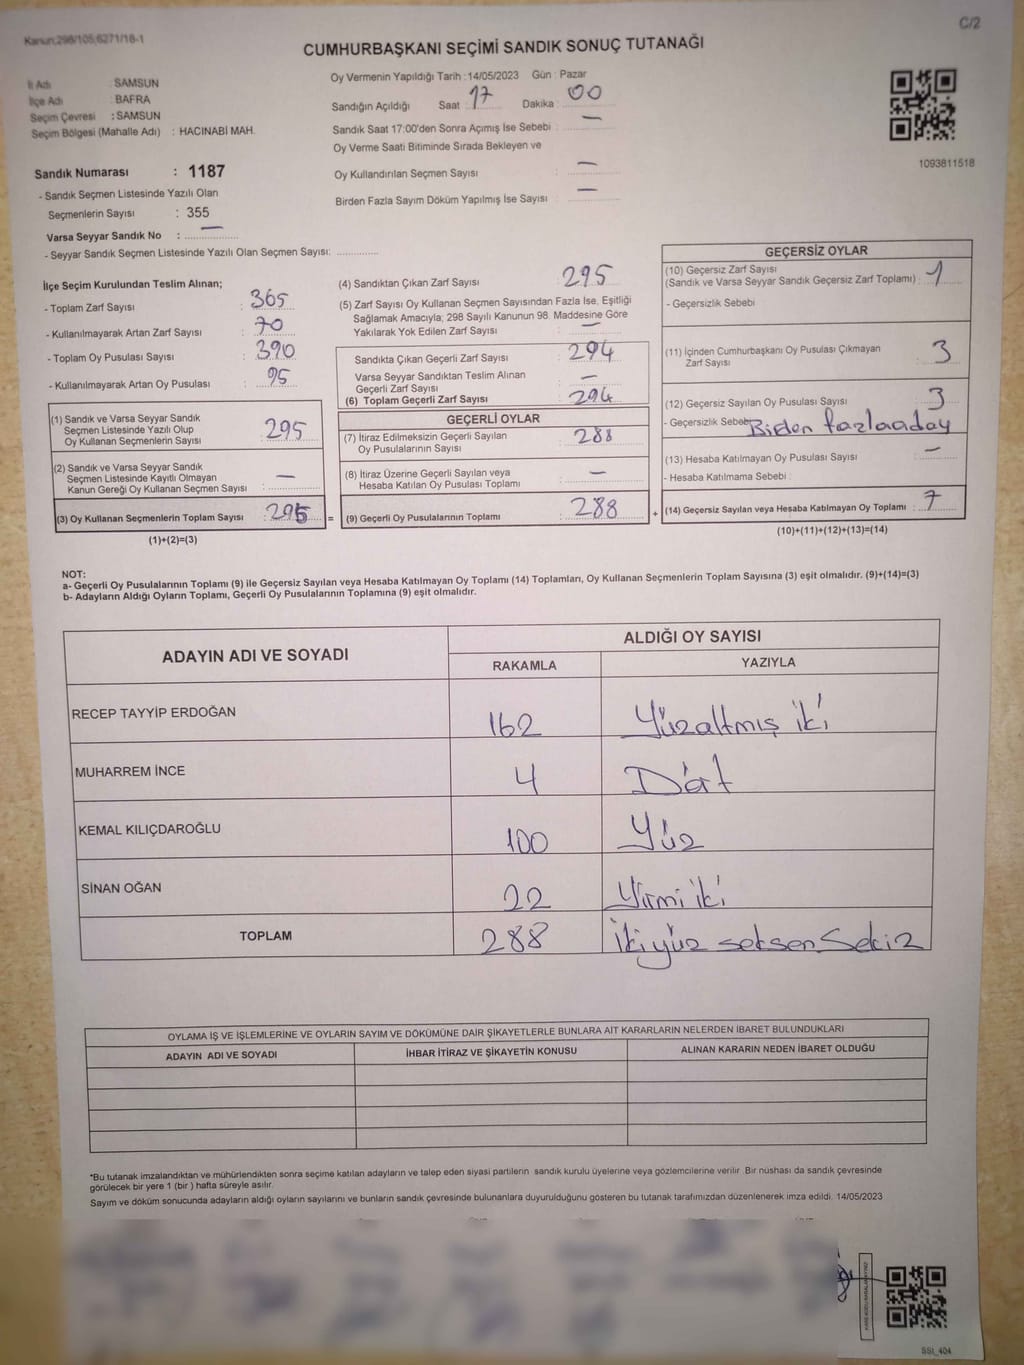 Kanun;298/105;6271/18-1
C/2
CUMHURBAŞKANI SEÇİMİ SANDIK SONUÇ TUTANAĞI
İl Adı : SAMSUN
İlçe Adı : BAFRA
Seçim Çevresi : SAMSUN
Seçim Bölgesi (Mahalle Adı) : HACINABİ MAH.
Oy Vermenin Yapıldığı Tarih :14/05/2023 Gün : Pazar
Sandığın Açıldığı Saat : 17 Dakika : 00
Sandık Saat 17:00'den Sonra Açımış İse Sebebi : —
Oy Verme Saati Bitiminde Sırada Bekleyen ve
Oy Kullandırılan Seçmen Sayısı : —
Birden Fazla Sayım Döküm Yapılmış İse Sayısı : —
1093811518
Sandık Numarası : 1187
- Sandık Seçmen Listesinde Yazılı Olan
Seçmenlerin Sayısı : 355
Varsa Seyyar Sandık No : —
- Seyyar Sandık Seçmen Listesinde Yazılı Olan Seçmen Sayısı: ..............
İlçe Seçim Kurulundan Teslim Alınan;
- Toplam Zarf Sayısı : 365
- Kullanılmayarak Artan Zarf Sayısı : 70
- Toplam Oy Pusulası Sayısı : 390
- Kullanılmayarak Artan Oy Pusulası : 95
(1) Sandık ve Varsa Seyyar Sandık
Seçmen Listesinde Yazılı Olup
Oy Kullanan Seçmenlerin Sayısı : 295
(2) Sandık ve Varsa Seyyar Sandık
Seçmen Listesinde Kayıtlı Olmayan
Kanun Gereği Oy Kullanan Seçmen Sayısı : —
(3) Oy Kullanan Seçmenlerin Toplam Sayısı : 295 =
(1)+(2)=(3)
(4) Sandıktan Çıkan Zarf Sayısı : 295
(5) Zarf Sayısı Oy Kullanan Seçmen Sayısından Fazla İse, Eşitliği
Sağlamak Amacıyla; 298 Sayılı Kanunun 98. Maddesine Göre
Yakılarak Yok Edilen Zarf Sayısı : —
Sandıkta Çıkan Geçerli Zarf Sayısı : 294
Varsa Seyyar Sandıktan Teslim Alınan
Geçerli Zarf Sayısı : —
(6) Toplam Geçerli Zarf Sayısı : 294
GEÇERLİ OYLAR
(7) İtiraz Edilmeksizin Geçerli Sayılan
Oy Pusulalarının Sayısı : 288
(8) İtiraz Üzerine Geçerli Sayılan veya
Hesaba Katılan Oy Pusulası Toplamı : —
(9) Geçerli Oy Pusulalarının Toplamı : 288 +
GEÇERSİZ OYLAR
(10) Geçersiz Zarf Sayısı
(Sandık ve Varsa Seyyar Sandık Geçersiz Zarf Toplamı) : 1
- Geçersizlik Sebebi
(11) İçinden Cumhurbaşkanı Oy Pusulası Çıkmayan
Zarf Sayısı : 3
(12) Geçersiz Sayılan Oy Pusulası Sayısı : 3
- Geçersizlik Sebebi Birden fazla aday
(13) Hesaba Katılmayan Oy Pusulası Sayısı : —
- Hesaba Katılmama Sebebi :
(14) Geçersiz Sayılan veya Hesaba Katılmayan Oy Toplamı : 7
(10)+(11)+(12)+(13)=(14)
NOT:
a- Geçerli Oy Pusulalarının Toplamı (9) ile Geçersiz Sayılan veya Hesaba Katılmayan Oy Toplamı (14) Toplamları, Oy Kullanan Seçmenlerin Toplam Sayısına (3) eşit olmalıdır. (9)+(14)=(3)
b- Adayların Aldığı Oyların Toplamı, Geçerli Oy Pusulalarının Toplamına (9) eşit olmalıdır.
ADAYIN ADI VE SOYADI
ALDIĞI OY SAYISI
RAKAMLA YAZIYLA
RECEP TAYYİP ERDOĞAN 162 Yüzaltmış iki
MUHARREM İNCE 4 Dört
KEMAL KILIÇDAROĞLU 100 Yüz
SİNAN OĞAN 22 Yirmi iki
TOPLAM 288 İkiyüz seksen Sekiz
OYLAMA İŞ VE İŞLEMLERİNE VE OYLARIN SAYIM VE DÖKÜMÜNE DAİR ŞİKAYETLERLE BUNLARA AİT KARARLARIN NELERDEN İBARET BULUNDUKLARI
ADAYIN ADI VE SOYADI İHBAR İTİRAZ VE ŞİKAYETİN KONUSU ALINAN KARARIN NEDEN İBARET OLDUĞU
*Bu tutanak imzalandıktan ve mühürlendikten sonra seçime katılan adayların ve talep eden siyasi partilerin sandık kurulu üyelerine veya gözlemcilerine verilir. Bir nüshası da sandık çevresinde
görülecek bir yere 1 (bir ) hafta süreyle asılır.
Sayım ve döküm sonucunda adayların aldığı oyların sayılarını ve bunların sandık çevresinde bulunanlara duyurulduğunu gösteren bu tutanak tarafımızdan düzenlenerek imza edildi. 14/05/2023
SSI_404